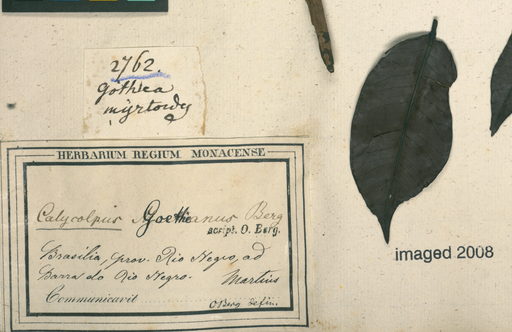 2762.
Gothea
myrtoides
HERBARIUM REGIUM MONACENSE
Calycolpus Goetheanus Berg
script. O. Berg.
Brasilia, prov. Rio Negro, ad
Barra do Rio Negro. Martius
Communicavit
O Berg defin.
imaged 2008